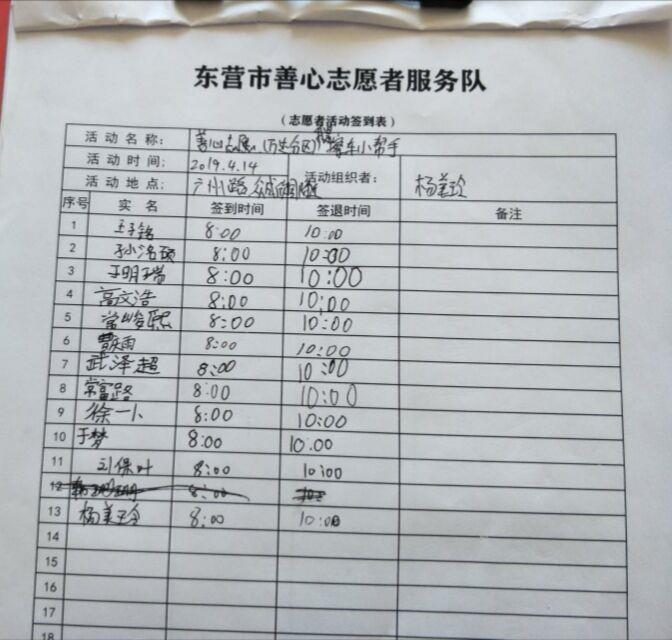 东营市善心志愿者服务队
(志愿者活动签到表)
活动名称: 善心志愿(万达分区) 擦车小帮手
活动时间: 2019.4.14
活动地点: 广州路 活动组织者: 杨美玲
序号 实名 签到时间 签退时间 备注
1 王子铭 8:00 10:00
2 孙小洺硕 8:00 10:00
3 王明瑞 8:00 10:00
4 高文浩 8:00 10:00
5 常峻熙 8:00 10:00
6 8:00 10:00
7 武泽超 8:00 10:00
8 常富路 8:00 10:00
9 徐一小 8:00 10:00
10 于梦 8:00 10:00
11 刘保叶 8:00 10:00
12 8:00
13 杨美玲 8:00 10:00
14
15
16
17
18